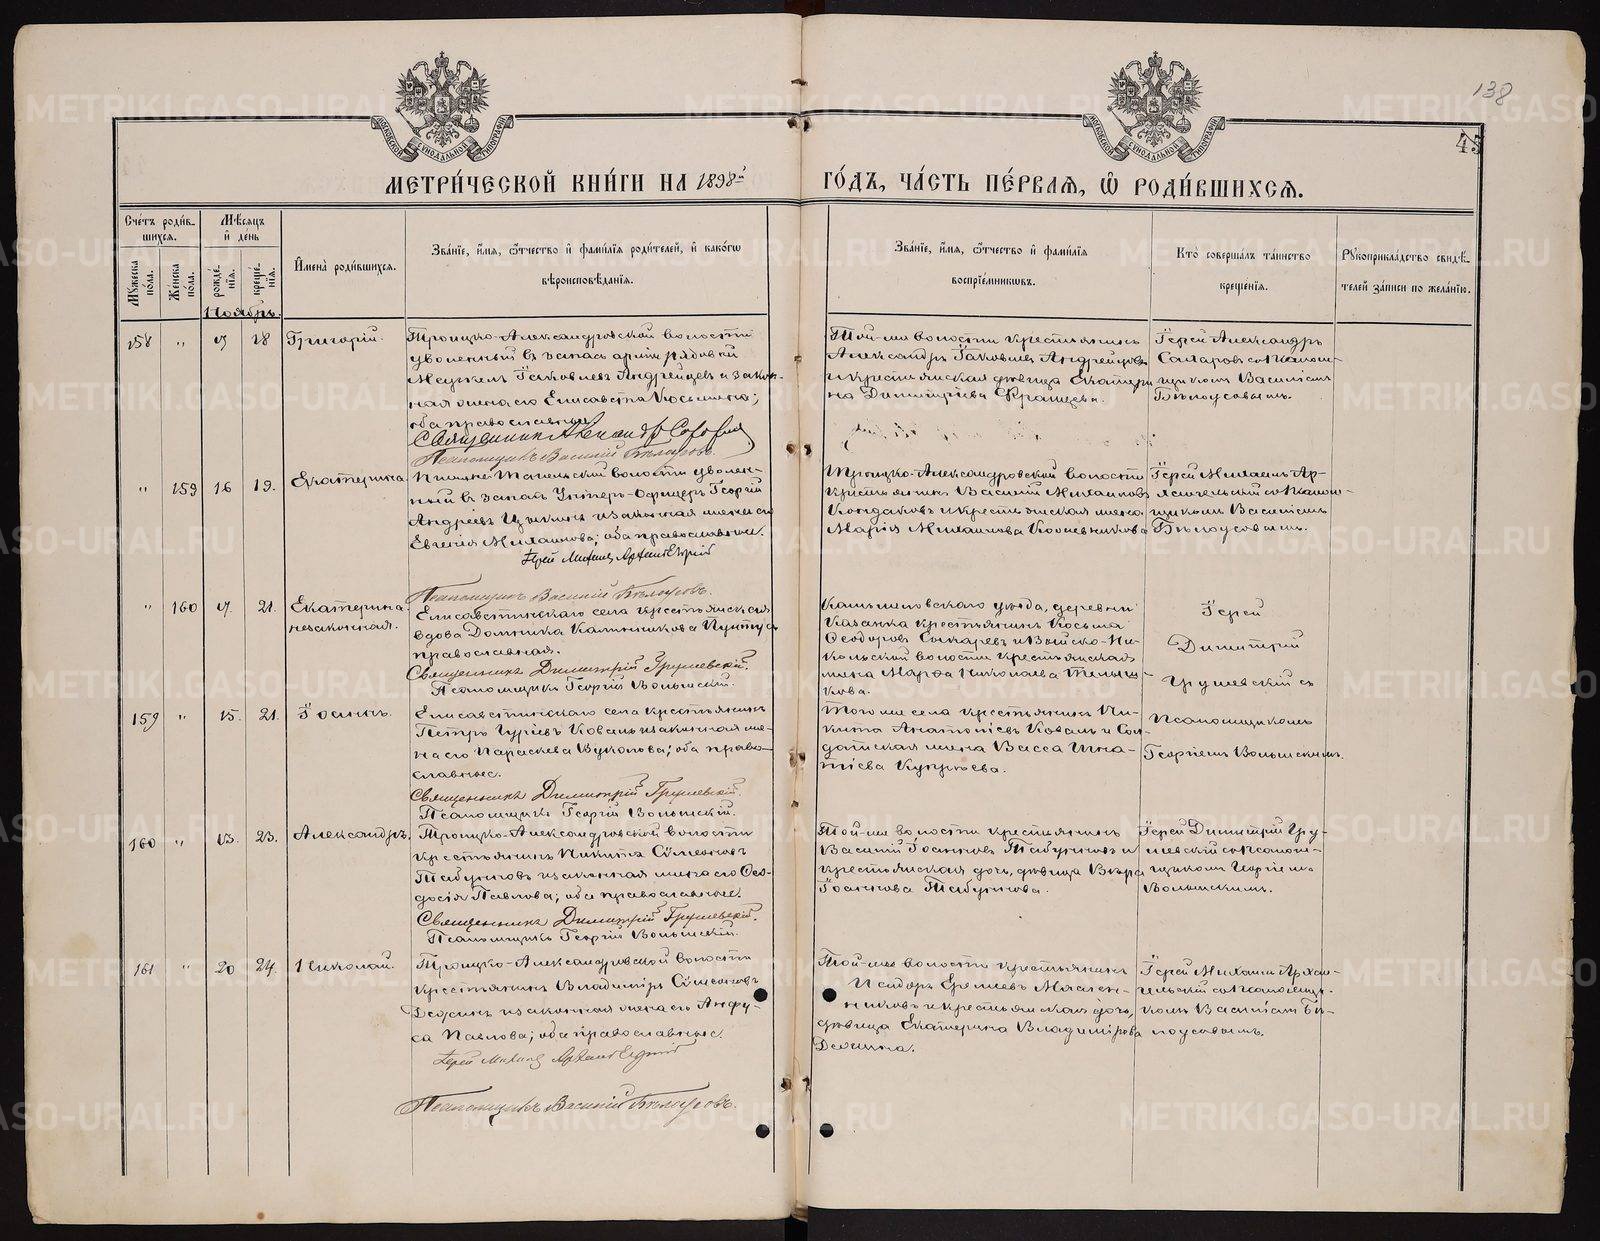 138
45
МОСКОВСКОЙ СѴНОДАЛЬНОЙ ТИПОГРАФІИ
МОСКОВСКОЙ СѴНОДАЛЬНОЙ ТИПОГРАФІИ
МЕТРИ́ЧЕСКОЙ КНИ́ГИ НА 1898й
ГО́ДЪ, ЧА́СТЬ ПЕ́РВАЯ, Ѡ РОДИ́ВШИХСЯ.
Сче́тъ роди́вшихся.
Мужеска по́ла.
Же́нска по́ла.
Мѣ́сяцъ и де́нь
рожде́нїя.
креще́нїя.
Имена̀ роди́вшихся.
Зва́нїе, и́мя, ѻ́тчество и фами́лїя роди́телей, и како́гѡ
вѣроисповѣ́данїя.
Зва́нїе, и́мя, ѻ́тчество и фами́лїя
воспрїе́мникѡвъ.
Кто̀ соверша́лъ та́инство
креще́нїя.
Рукоприкла́дство свидѣ́-
телей за́писи по жела́нїю.
Ноябрь.
158 " 18 Григорій.
Троицко-Александровской волости
уволенный въ запасъ арміи рядовой
Іаковлевъ Андрейцевъ и закон-
ная жена его Елисавета Косьмина;
оба православные
Священникъ Александръ
Псаломщикъ Василій Бѣлоусовъ.
Той-же волости крестьянинъ
Александръ Іаковлевъ Андрейцевъ
и крестьянская дѣвица Екатери
на Димитріева
Іерей Александръ
съ псалом-
щикомъ Василіемъ
Бѣлоусовымъ.
" 159 16 19. Екатерина.
волости уволен-
ный въ запасъ Унтеръ-Офицеръ Георгій
Андреевъ и законная жена его
Евгенія Михаилова; оба православные.
Іерей Михаилъ Архангельскій
Псаломщикъ Василій Бѣлоусовъ.
Троицко-Александровской волости
крестьянинъ Василій Михаиловъ
Кондаковъ и крестьянская жена
Марія Михаилова Кожевникова
Іерей Михаилъ Ар-
хангельскій съ псалом-
щикомъ Василіемъ
Бѣлоусовымъ.
" 160 21. Екатерина
незаконная.
Елисаветинскаго села крестьянская
вдова Домника Калинникова
православная.
Священникъ Димитрій Грушевскій.
Псаломщикъ Георгій Волынскій.
уѣзда, деревни
Казанка крестьянинъ Косьма
Ѳеодоровъ и Войско-Ни-
кольской волости крестьянская
жена Марѳа Николаева
кова.
Іерей
Димитрій
Грушевскій съ
159 " 15. 21. Іоаннъ.
Елисаветинскаго села крестьянинъ
Петръ Гуріевъ Коваль и законная же-
на его Параскева Вуколова; оба право-
славные.
Священникъ Димитрій Грушевскій.
Псаломщикъ Георгій Волынскій.
Того же села крестьянинъ Ни-
кита Анатоліевъ Коваль и Сол-
датская жена Васса Игна-
тіева
псаломщикомъ
Георгіемъ Волынскимъ.
160 " 13. 23. Александръ.
Троицко-Александровской волости
крестьянинъ Никита Сѵмеоновъ
Табунковъ и законная жена его Ѳео-
досія Павлова; оба православные.
Священникъ Димитрій Грушевскій.
Псаломщикъ Георгій Волынскій.
Той-же волости крестьянинъ
Василій Іоанновъ Табунковъ и
крестьянская дочь, дѣвица Вѣра
Іоаннова Табункова.
Іерей Димитрій Гру-
шевскій съ псалом-
щикомъ Георгіемъ
Волынскимъ.
161 " 20 24. Николай.
Троицко-Александровской волости
крестьянинъ Владиміръ Сѵмеоновъ
и законная жена его Анфу-
са Павлова; оба православные.
Іерей Михаилъ Архангельскій
Псаломщикъ Василій Бѣлоусовъ.
Той-же волости крестьянинъ
Исидоръ
и крестьянская дочь,
дѣвица Екатерина Владимірова
Іерей Михаилъ Архан-
гельскій съ псаломщи-
комъ Василіемъ Бѣ-
лоусовымъ.
METRIKI.GASO-URAL.RU